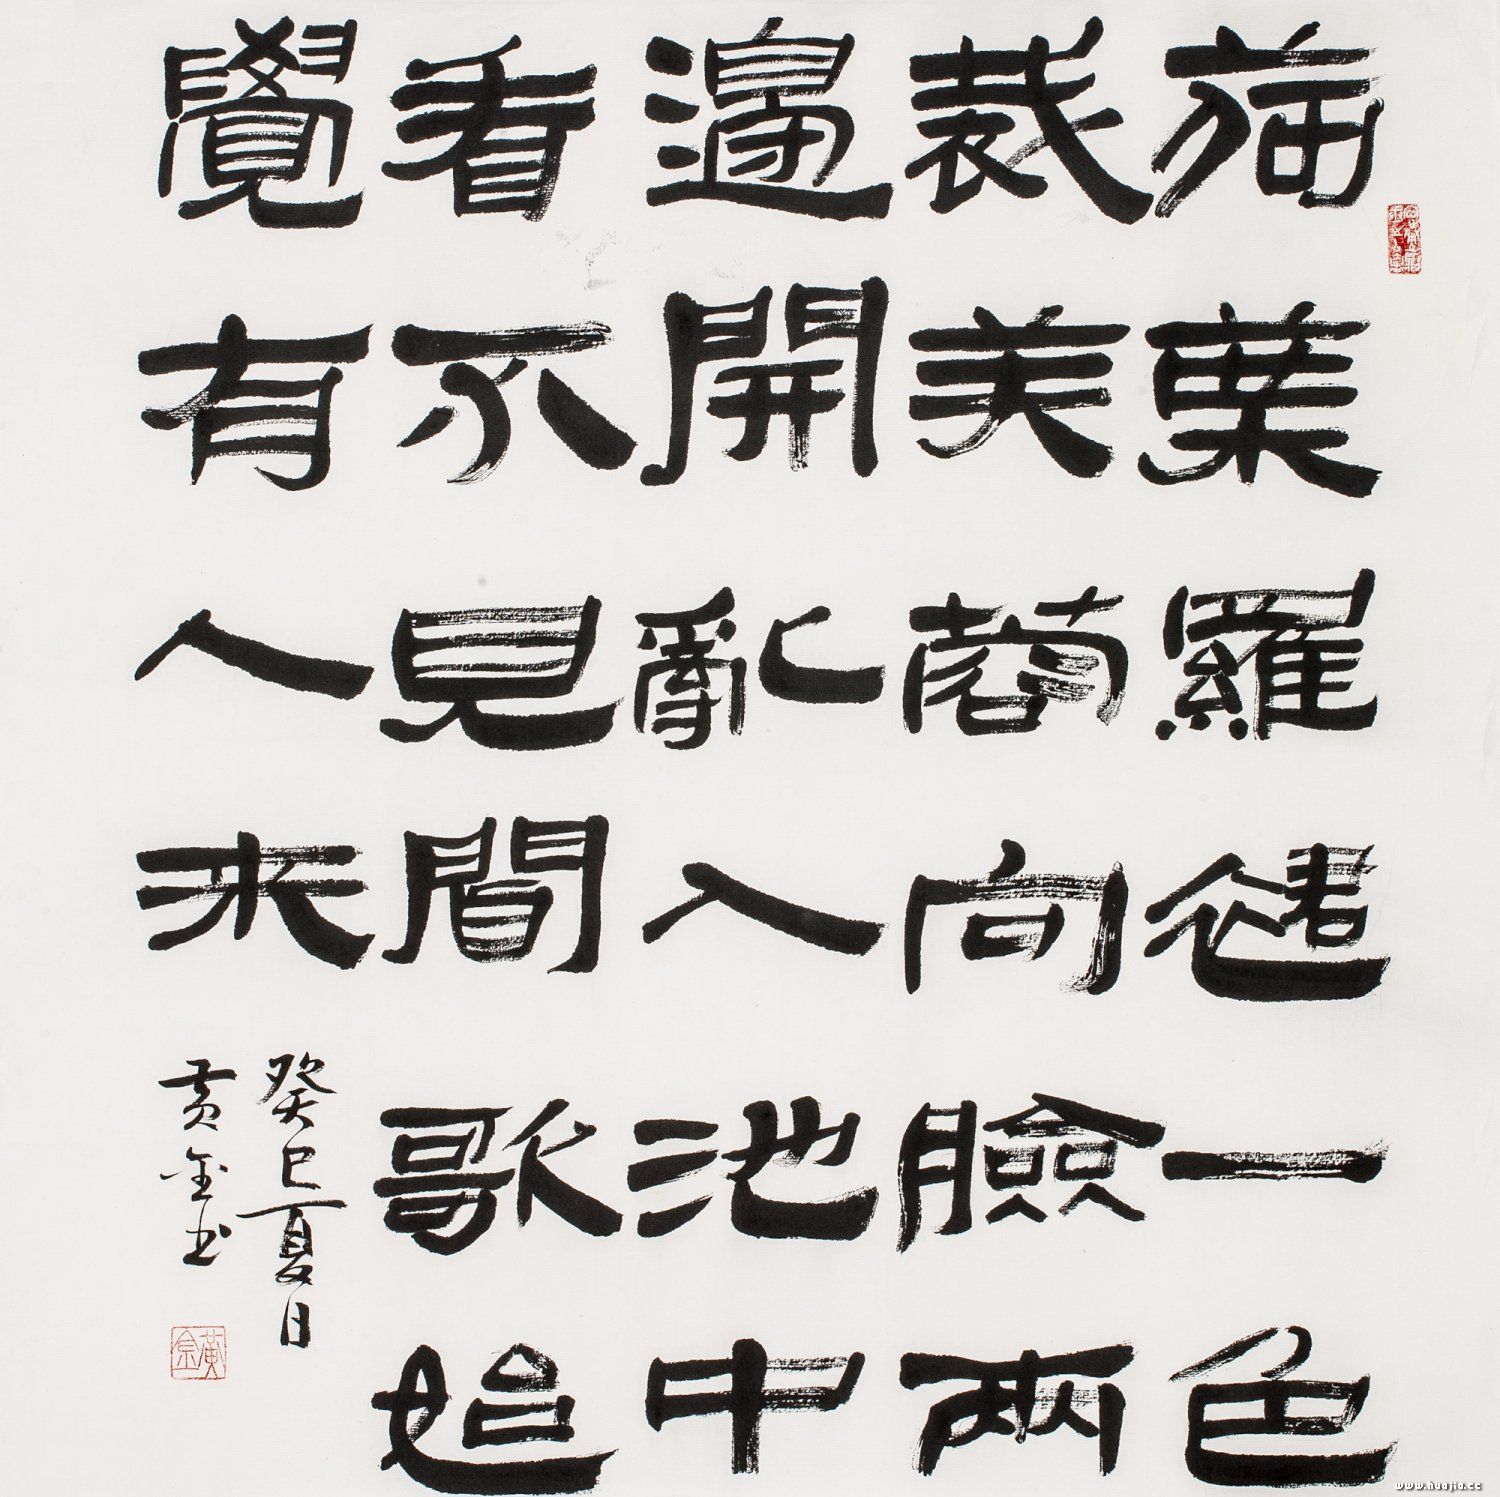 荷葉羅裙一色
裁芙蓉向臉兩
邊開亂入池中
看不見聞歌始
覺有人来
癸巳夏日
黄金书
黄金
www.huajia.cc